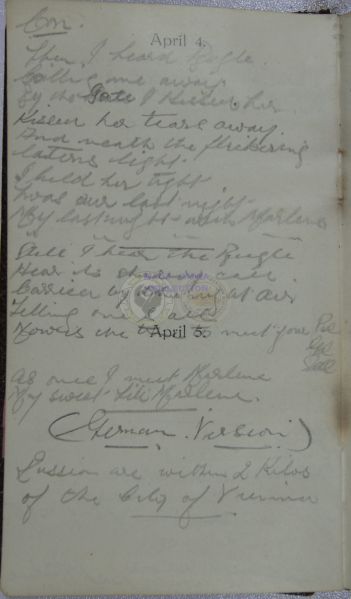 Con.
April 4.
Then I heard Bugle
Calling me away.
By the Gate I kissed her
Kissed her tears away.
And neath the flickering
laterns light.
I held her tight
Twas our last night.
My last night with Marlene
Still I hear the Bugle
Hear its
Carried by the at our
Telling one & all
Now's the time to meet your Pal
April 5.
Gal
as once I meet Marlene
My sweet Lilli Marlene.
(German Version)
Russian are within 2 Kilos
of the City of Vienna